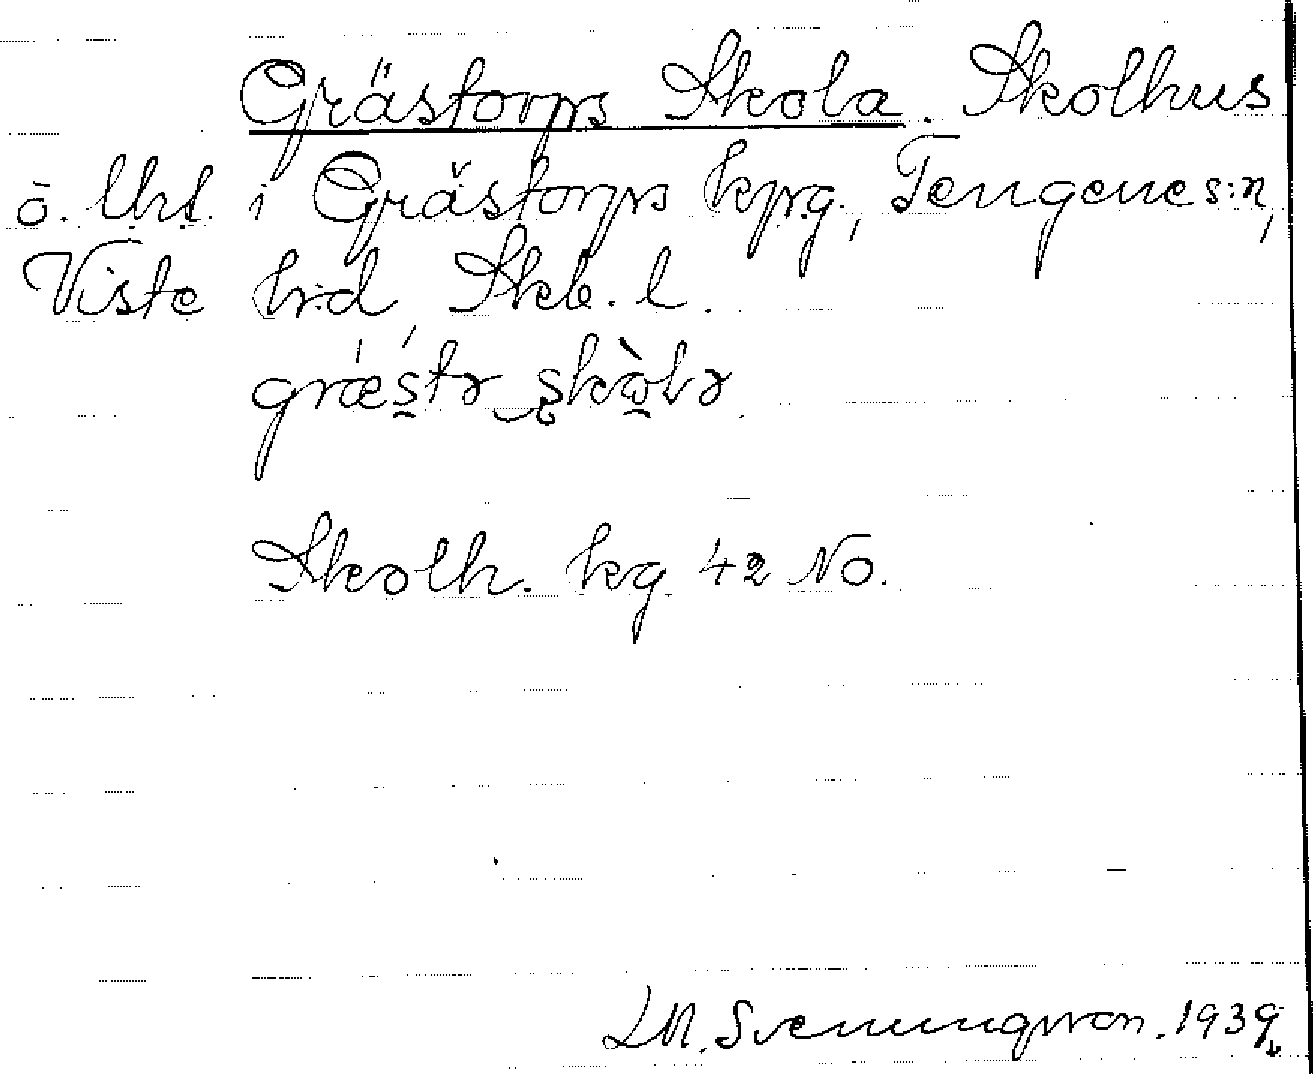 Grästorps Skola. Skolhus
ö. Uhl. i Grästorps kpg., Tengene s:n,
Viste hrd, Skb. l.
græ´sta skòla
Skolh. kg 42 NO.
Svenungsson. 1939